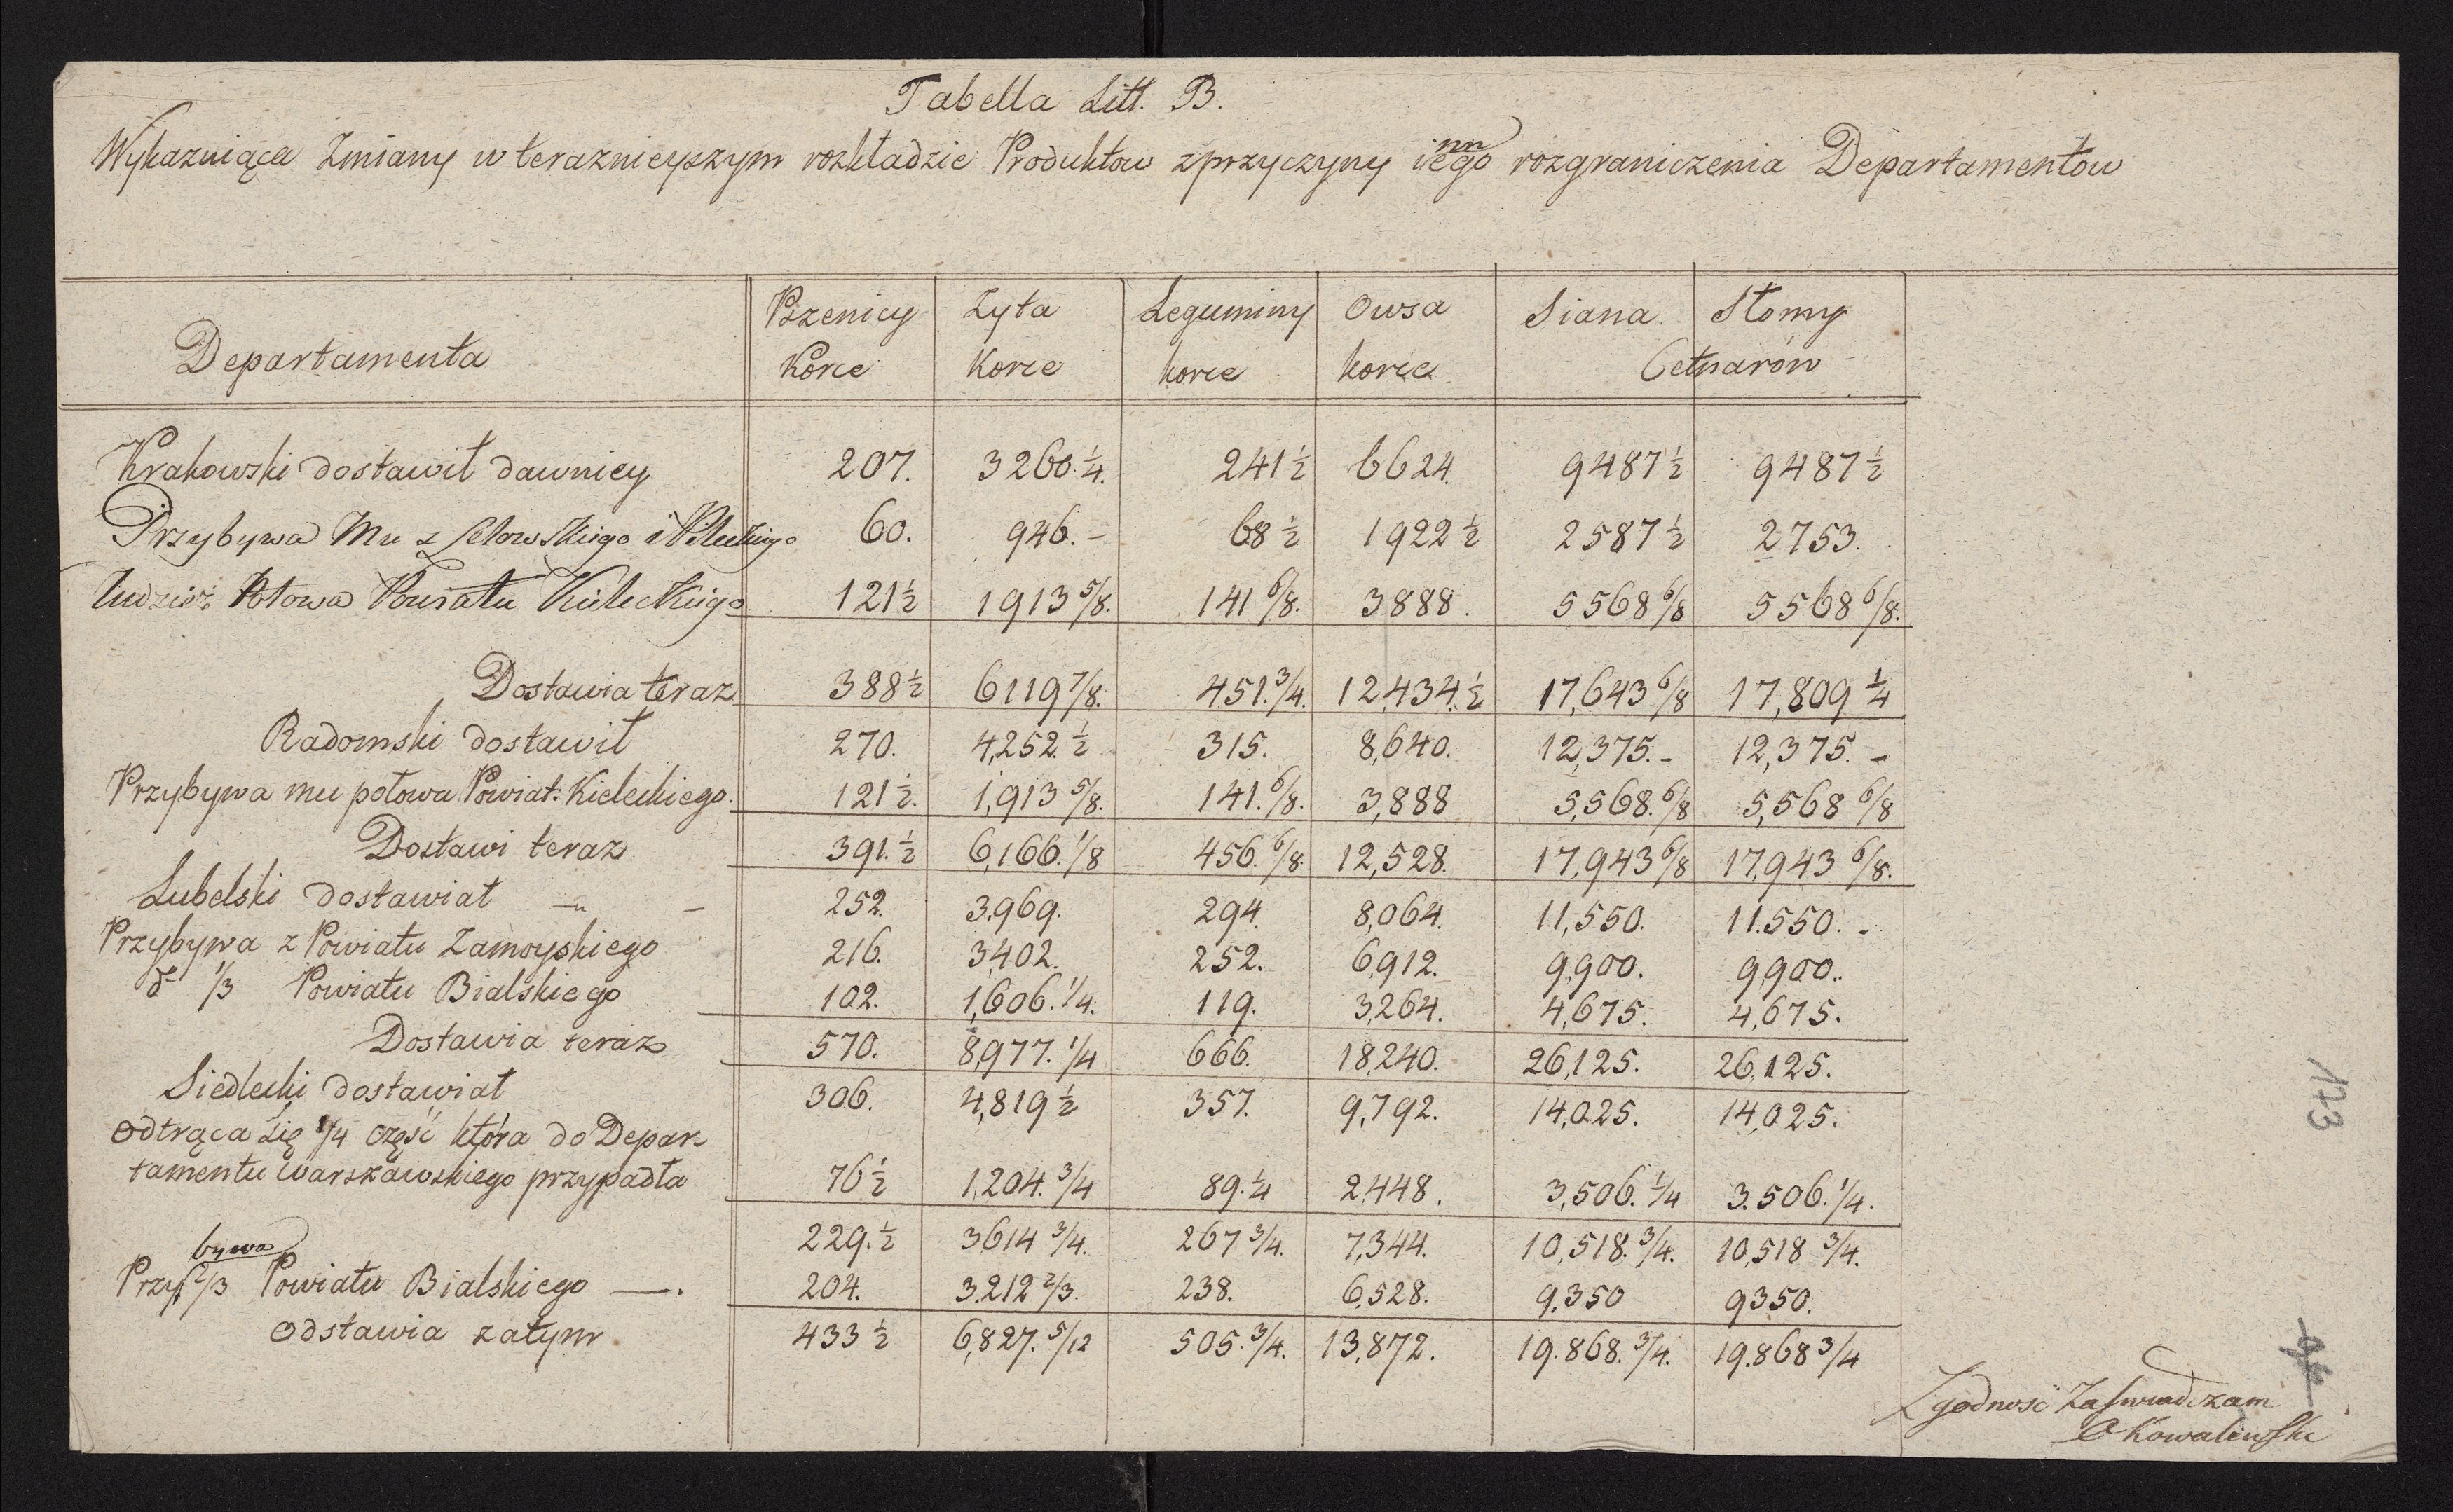 Tabella Litt. B.
Wykazuiąca Zmiany w teraznieyszym rozkładzie Produktow z przyczyny innego rozgraniczenia Departamentow
Departamenta Pszenicy Korce Zyta Korce Leguminy korce Owsa korce Siana Słomy Cetnarów
Krakowski dostawił dawniey 207. 3260 1/4. 241 1/2 6624. 9487 1/2 9487 1/2
Przybywa Mu z Lelowskiego i Pileckiego 60. 946. - 68 1/2 1922 1/2 2587 1/2 2753.
tudzież Połowa Powiatu Kieleckiego 121 1/2 1913 5/8. 141 6/8. 3888. 5568 6/8 5568 6/8.
Dostawia teraz 388 1/2 6119 7/8. 451. 3/4. 12,434. 1/2 17,643 6/8 17,809 1/4
Radomski dostawił 270. 4,252. 1/2 315. 8,640. 12,375. - 12,375. -
Przybywa mu połowa Powiat: Kieleckiego. 121 1/2. 1,913 5/8. 141. 6/8. 3,888 5,568. 6/8 5,568 6/8
Dostawi teraz 391. 1/2 6,166. 1/8 456. 6/8. 12,528. 17,943 6/8 17,943 6/8.
Lubelski dostawiał — — 252. 3,969. 294. 8,064. 11,550. 11.550. -
Przybywa z Powiatu Zamoyskiego 216. 3,402. 252. 6,912. 9,900. 9,900..
1/3 Powiatu Bialskiego 102. 1,606. 1/4. 119. 3,264. 4,675. 4,675.
Dostawia teraz 570. 8,977. 1/4 666. 18,240. 26,125. 26,125.
Siedlecki dostawiał 306. 4,819 1/2 357. 9,792. 14,025. 14,025.
Odtrąca się 1/4 część która do Depar-
tamentu Warszawskiego przypadła 76 1/2 1,204. 3/4 89. 1/4 2,448. 3,506. 1/4 3.506. 1/4.
229. 1/2 3614 3/4. 267 3/4. 7,344. 10,518. 3/4. 10,518 3/4.
Przybywa 2/3 Powiatu Bialskiego —. 204. 3.212 2/3. 238. 6,528. 9.350 9350.
Odstawia zatym 433 1/2 6,827. 5/12 505. 3/4. 13,872. 19.868. 3/4. 19.868 3/4
Zgodność Zaświadczam
Kowalewski
173